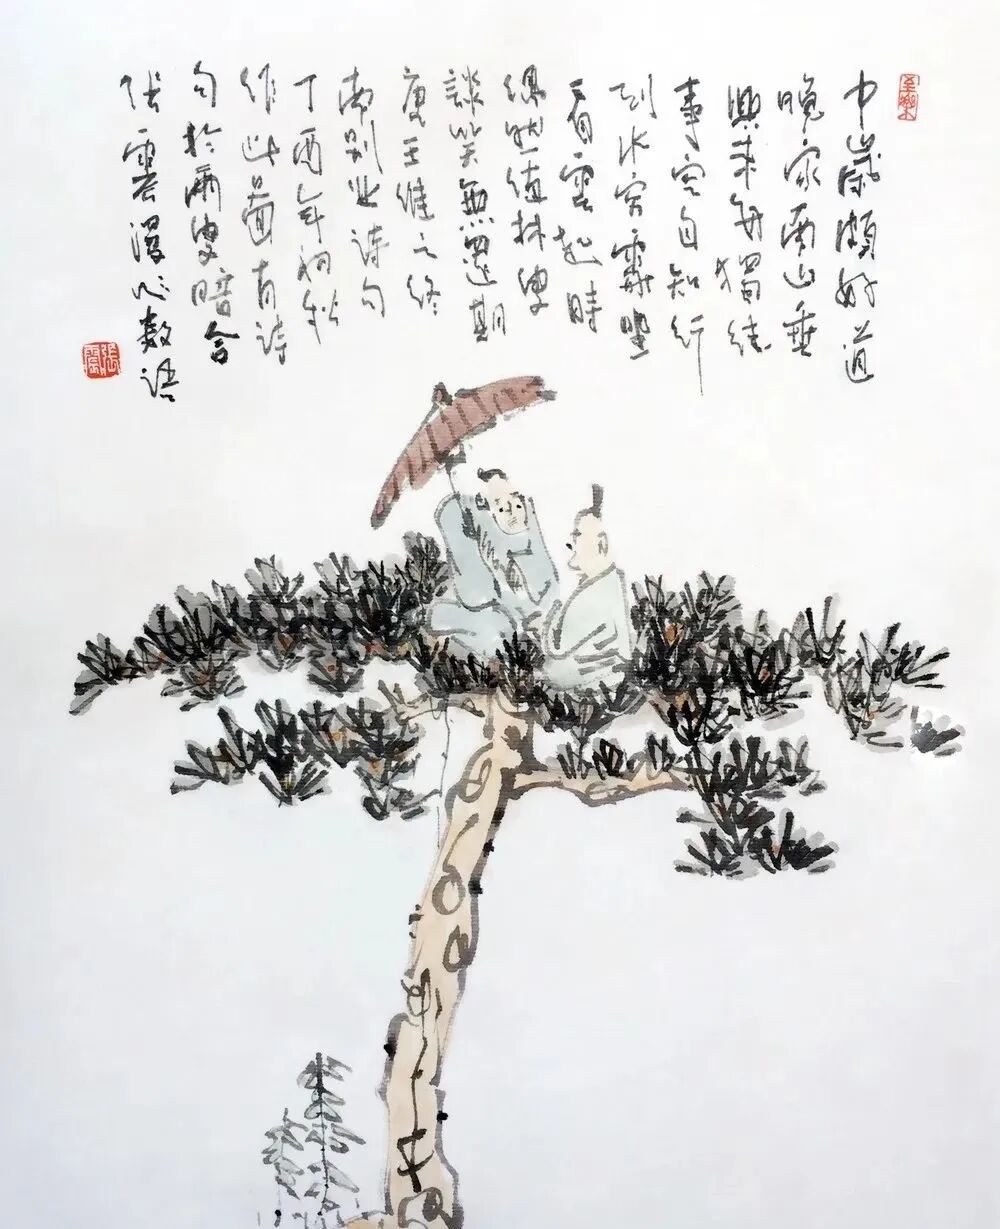 至樂
中歲頗好道
晚家南山垂
興來每獨往
事空自知行
到水窮處坐
看雲起時
偶然值林叟
談笑無還期
唐王維之終
南別業詩句
丁酉年初秋
作此圖有詩
句於兩叟暗合
張漫數語